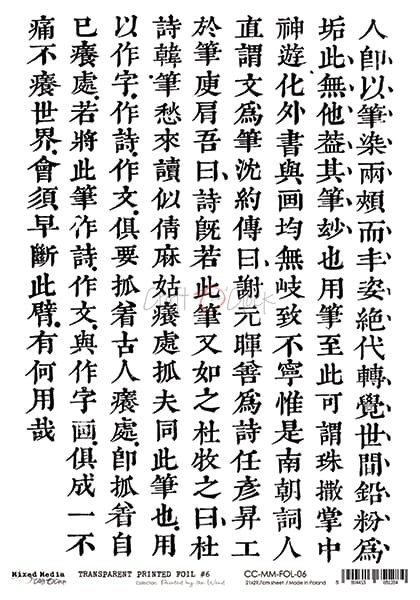 人卽以筆染兩頰而丰姿絶代轉覺世間鉛粉爲
垢此無他葢其筆玅也用筆至此可謂珠撒掌中
神遊化外書與画均無岐致不寧惟是南朝詞人
直謂文爲筆沈約傳曰謝元暉善爲詩任彦昇工
於筆庾肩吾曰詩旣若此筆又如之杜牧之曰杜
詩韓筆愁來讀似倩麻姑癢處抓夫同此筆也用
以作字作詩作文俱要抓着古人癢處卽抓着自
已癢處若將此筆作詩作文與作字画俱成一不
痛不癢世界會須早斷此臂有何用哉
Craft O'Clock
Mixed Media
TRANSPARENT PRINTED FOIL #6
CC-MM-FOL-06
21x29,7cm sheet / Made in Poland